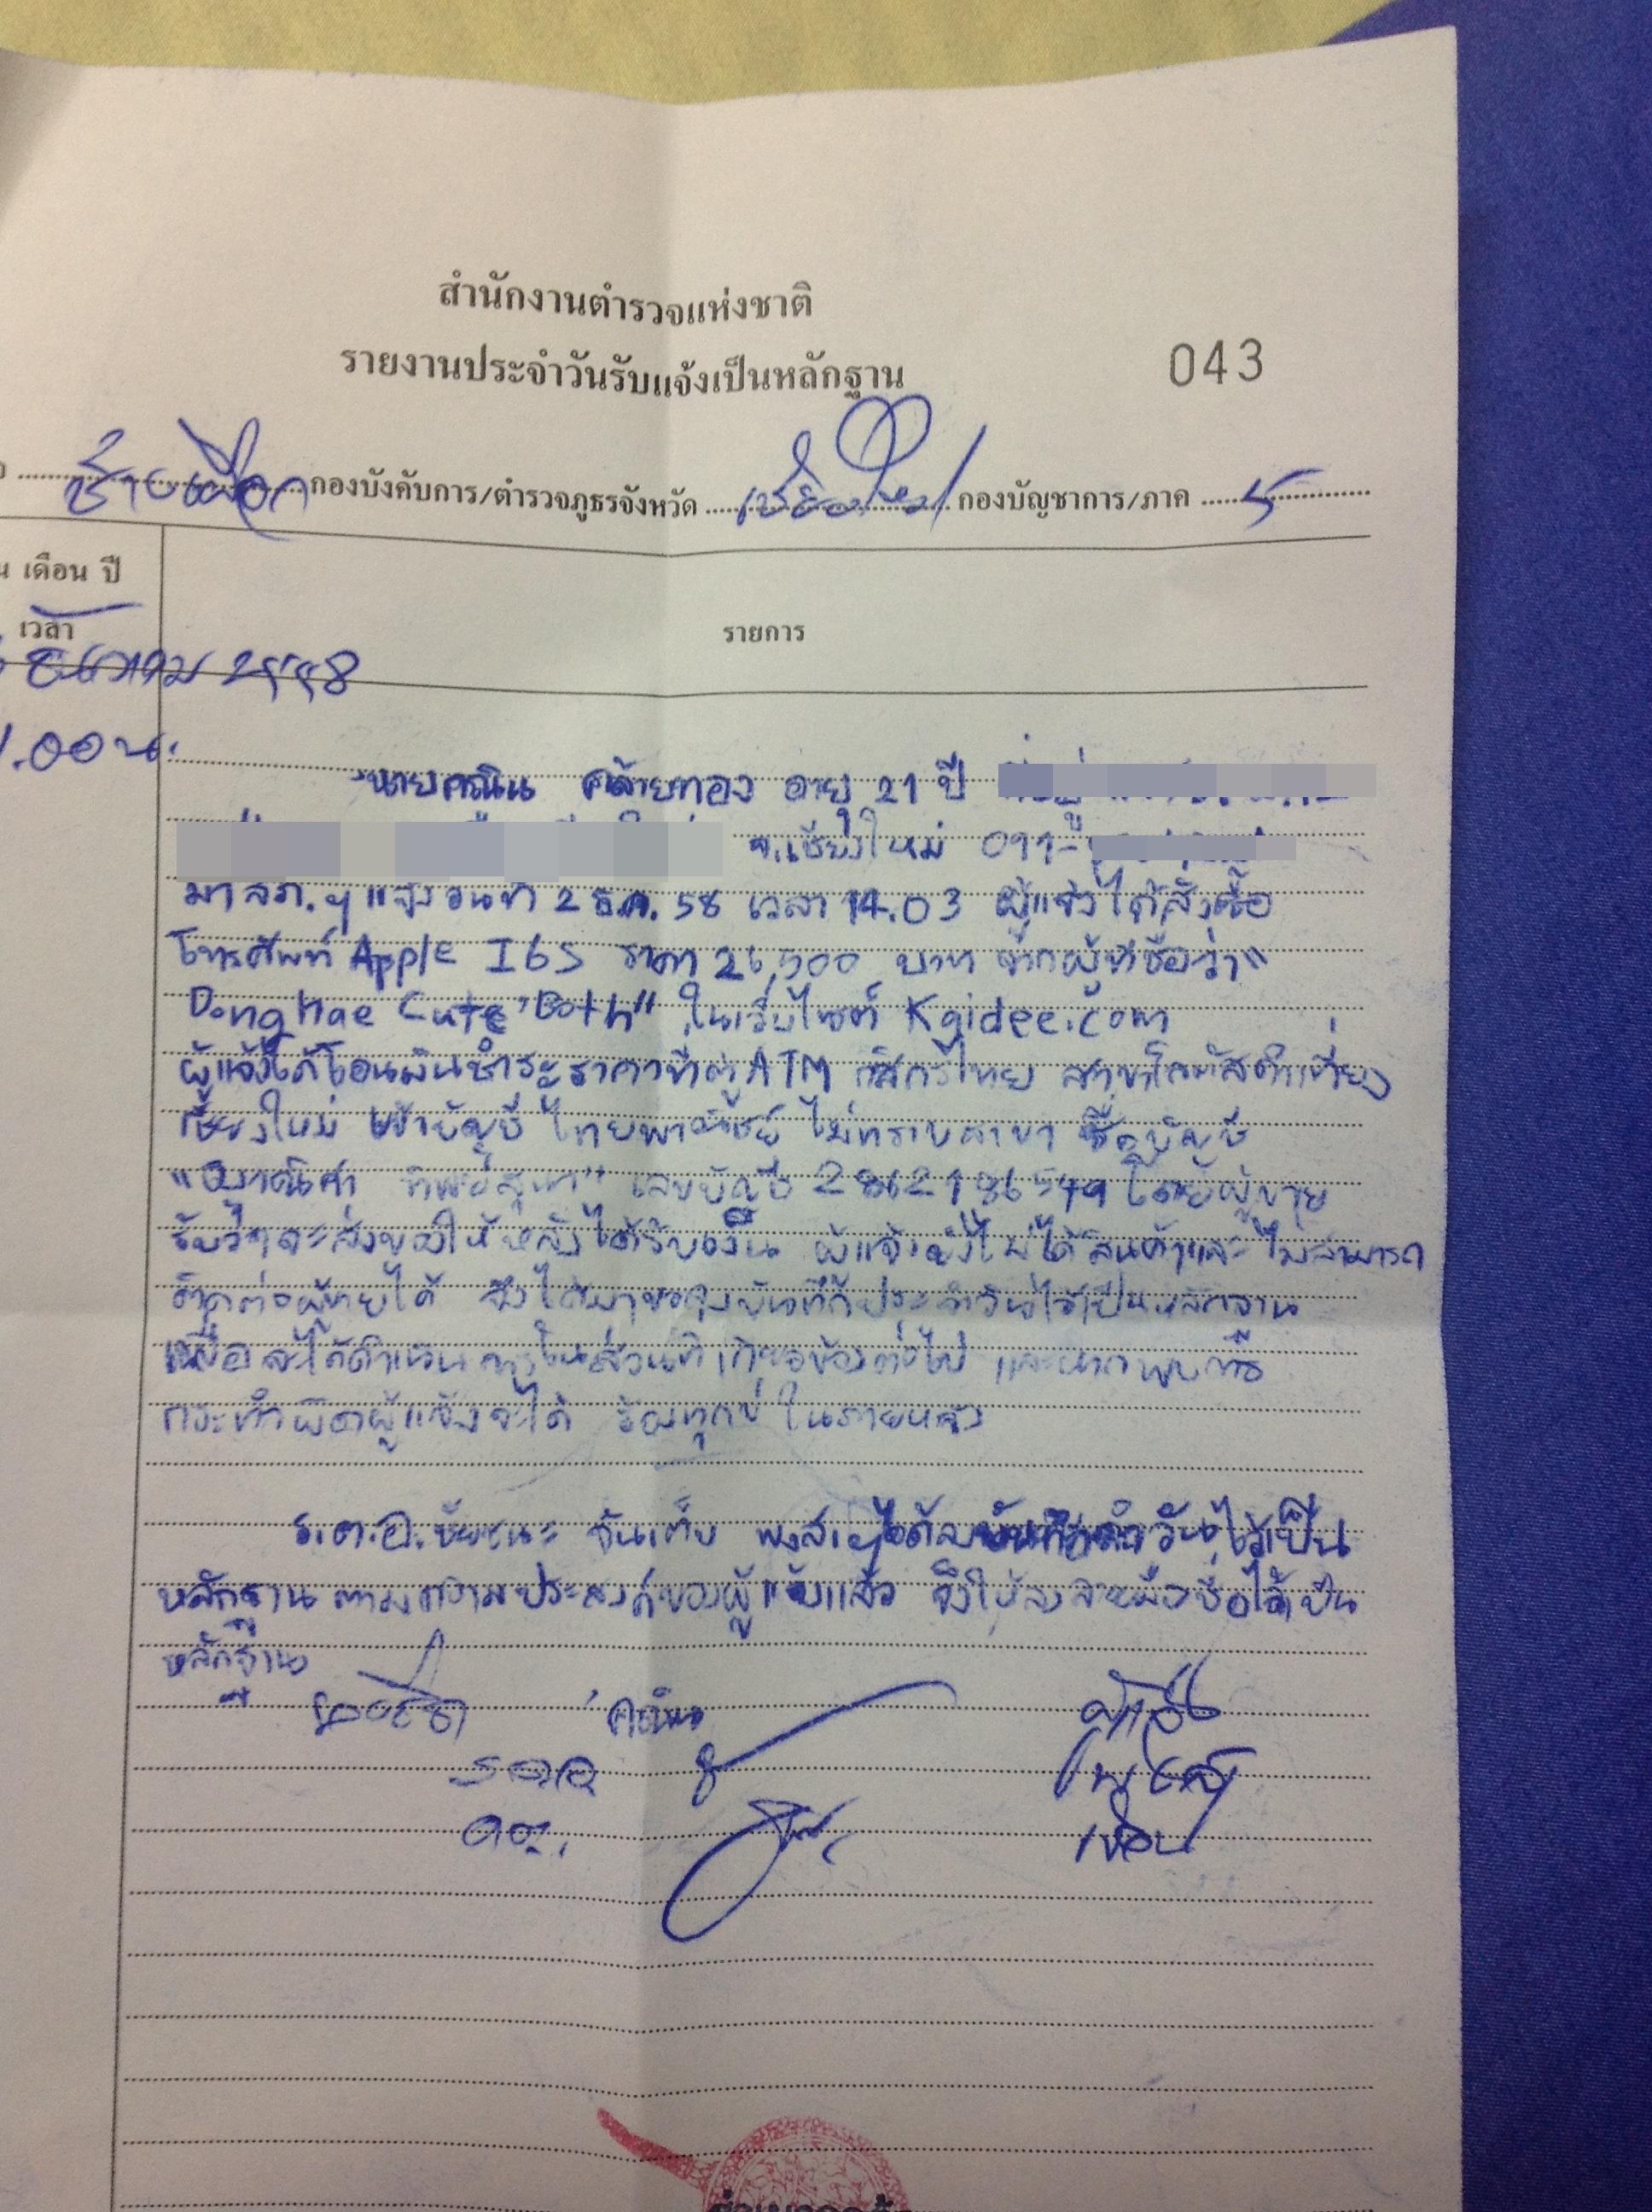 สำนักงานตำรวจแห่งชาติ
รายงานประจำวันรับแจ้งเป็นหลักฐาน
043
ช้างเผือก กองบังคับการ/ตำรวจภูธรจังหวัด เชียงใหม่ กองบัญชาการ/ภาค 5
เดือน ปี
เวลา
รายการ
ธันวาคม 2558
.00 น.
นายคณิน คล้ายทอง อายุ 21 ปี
จ.เชียงใหม่ 091-
มา สภ.ฯ แจ้งวันที่ 2 ธ.ค. 58 เวลา 14.03 ผู้แจ้งได้สั่งซื้อ
โทรศัพท์ Apple I6S ราคา 26,500 บาท จากผู้ที่ชื่อว่า "
Donghae Cute'Both" ในเว็บไซต์ Kaidee.com
ผู้แจ้งได้โอนเงินชำระราคาที่ตู้ ATM กสิกรไทย สาขาโลตัสคำเที่ยง
เชียงใหม่ เข้าบัญชี ไทยพาณิชย์ ไม่ทราบสาขา ชื่อบัญชี
เลขบัญชี โดยผู้ขาย
รับว่าจะส่งของให้หลังได้รับเงิน ผู้แจ้งยังไม่ได้สินค้าและไม่สามารถ
ติดต่อผู้ขายได้ จึงได้มาขอลงบันทึกประจำวันไว้เป็นหลักฐาน
เพื่อจะได้ดำเนินการในส่วนที่เกี่ยวข้องต่อไป และหากพบการ
กระทำผิดผู้แจ้งจะได้ ร้องทุกข์ ในภายหลัง
ร.ต.อ.ชัยชนะ พงส.ฯ ได้ลง วันไว้เป็น
หลักฐาน ตามความประสงค์ของผู้แจ้งแล้ว จึงให้ลงลายมือชื่อไว้เป็น
หลักฐาน
คณิน ผู้แจ้ง